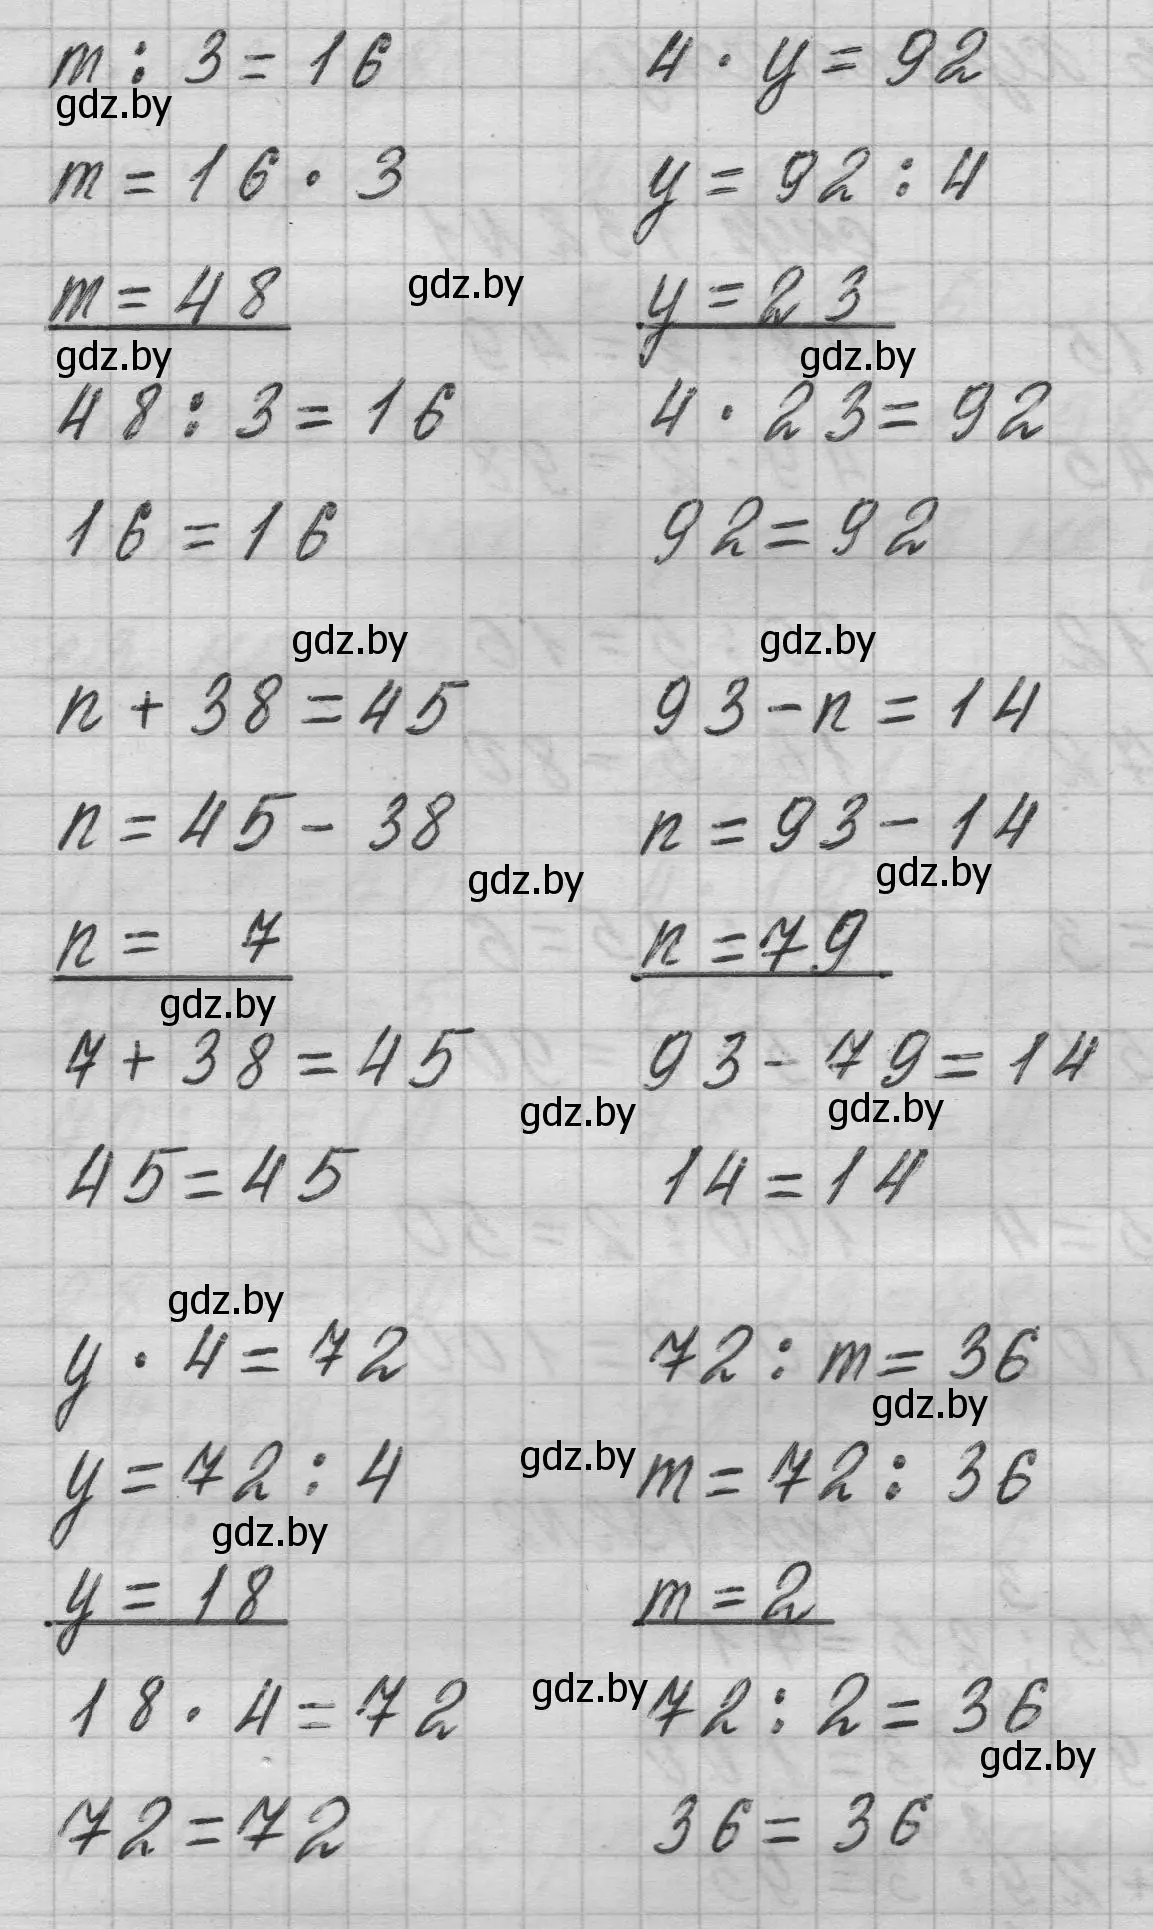 m : 3 = 16
gdz.by
m = 16 · 3
m = 48
gdz.by
gdz.by
48 : 3 = 16
16 = 16
4 · y = 92
y = 92 : 4
y = 23
gdz.by
4 · 23 = 92
92 = 92
gdz.by
n + 38 = 45
n = 45 - 38
gdz.by
n = 7
gdz.by
7 + 38 = 45
gdz.by
45 = 45
gdz.by
93 - n = 14
n = 93 - 14
gdz.by
n = 79
93 - 79 = 14
gdz.by
14 = 14
gdz.by
y · 4 = 72
y = 72 : 4
gdz.by
gdz.by
y = 18
18 · 4 = 72
72 = 72
72 : m = 36
gdz.by
m = 72 : 36
m = 2
gdz.by
72 : 2 = 36
gdz.by
36 = 36